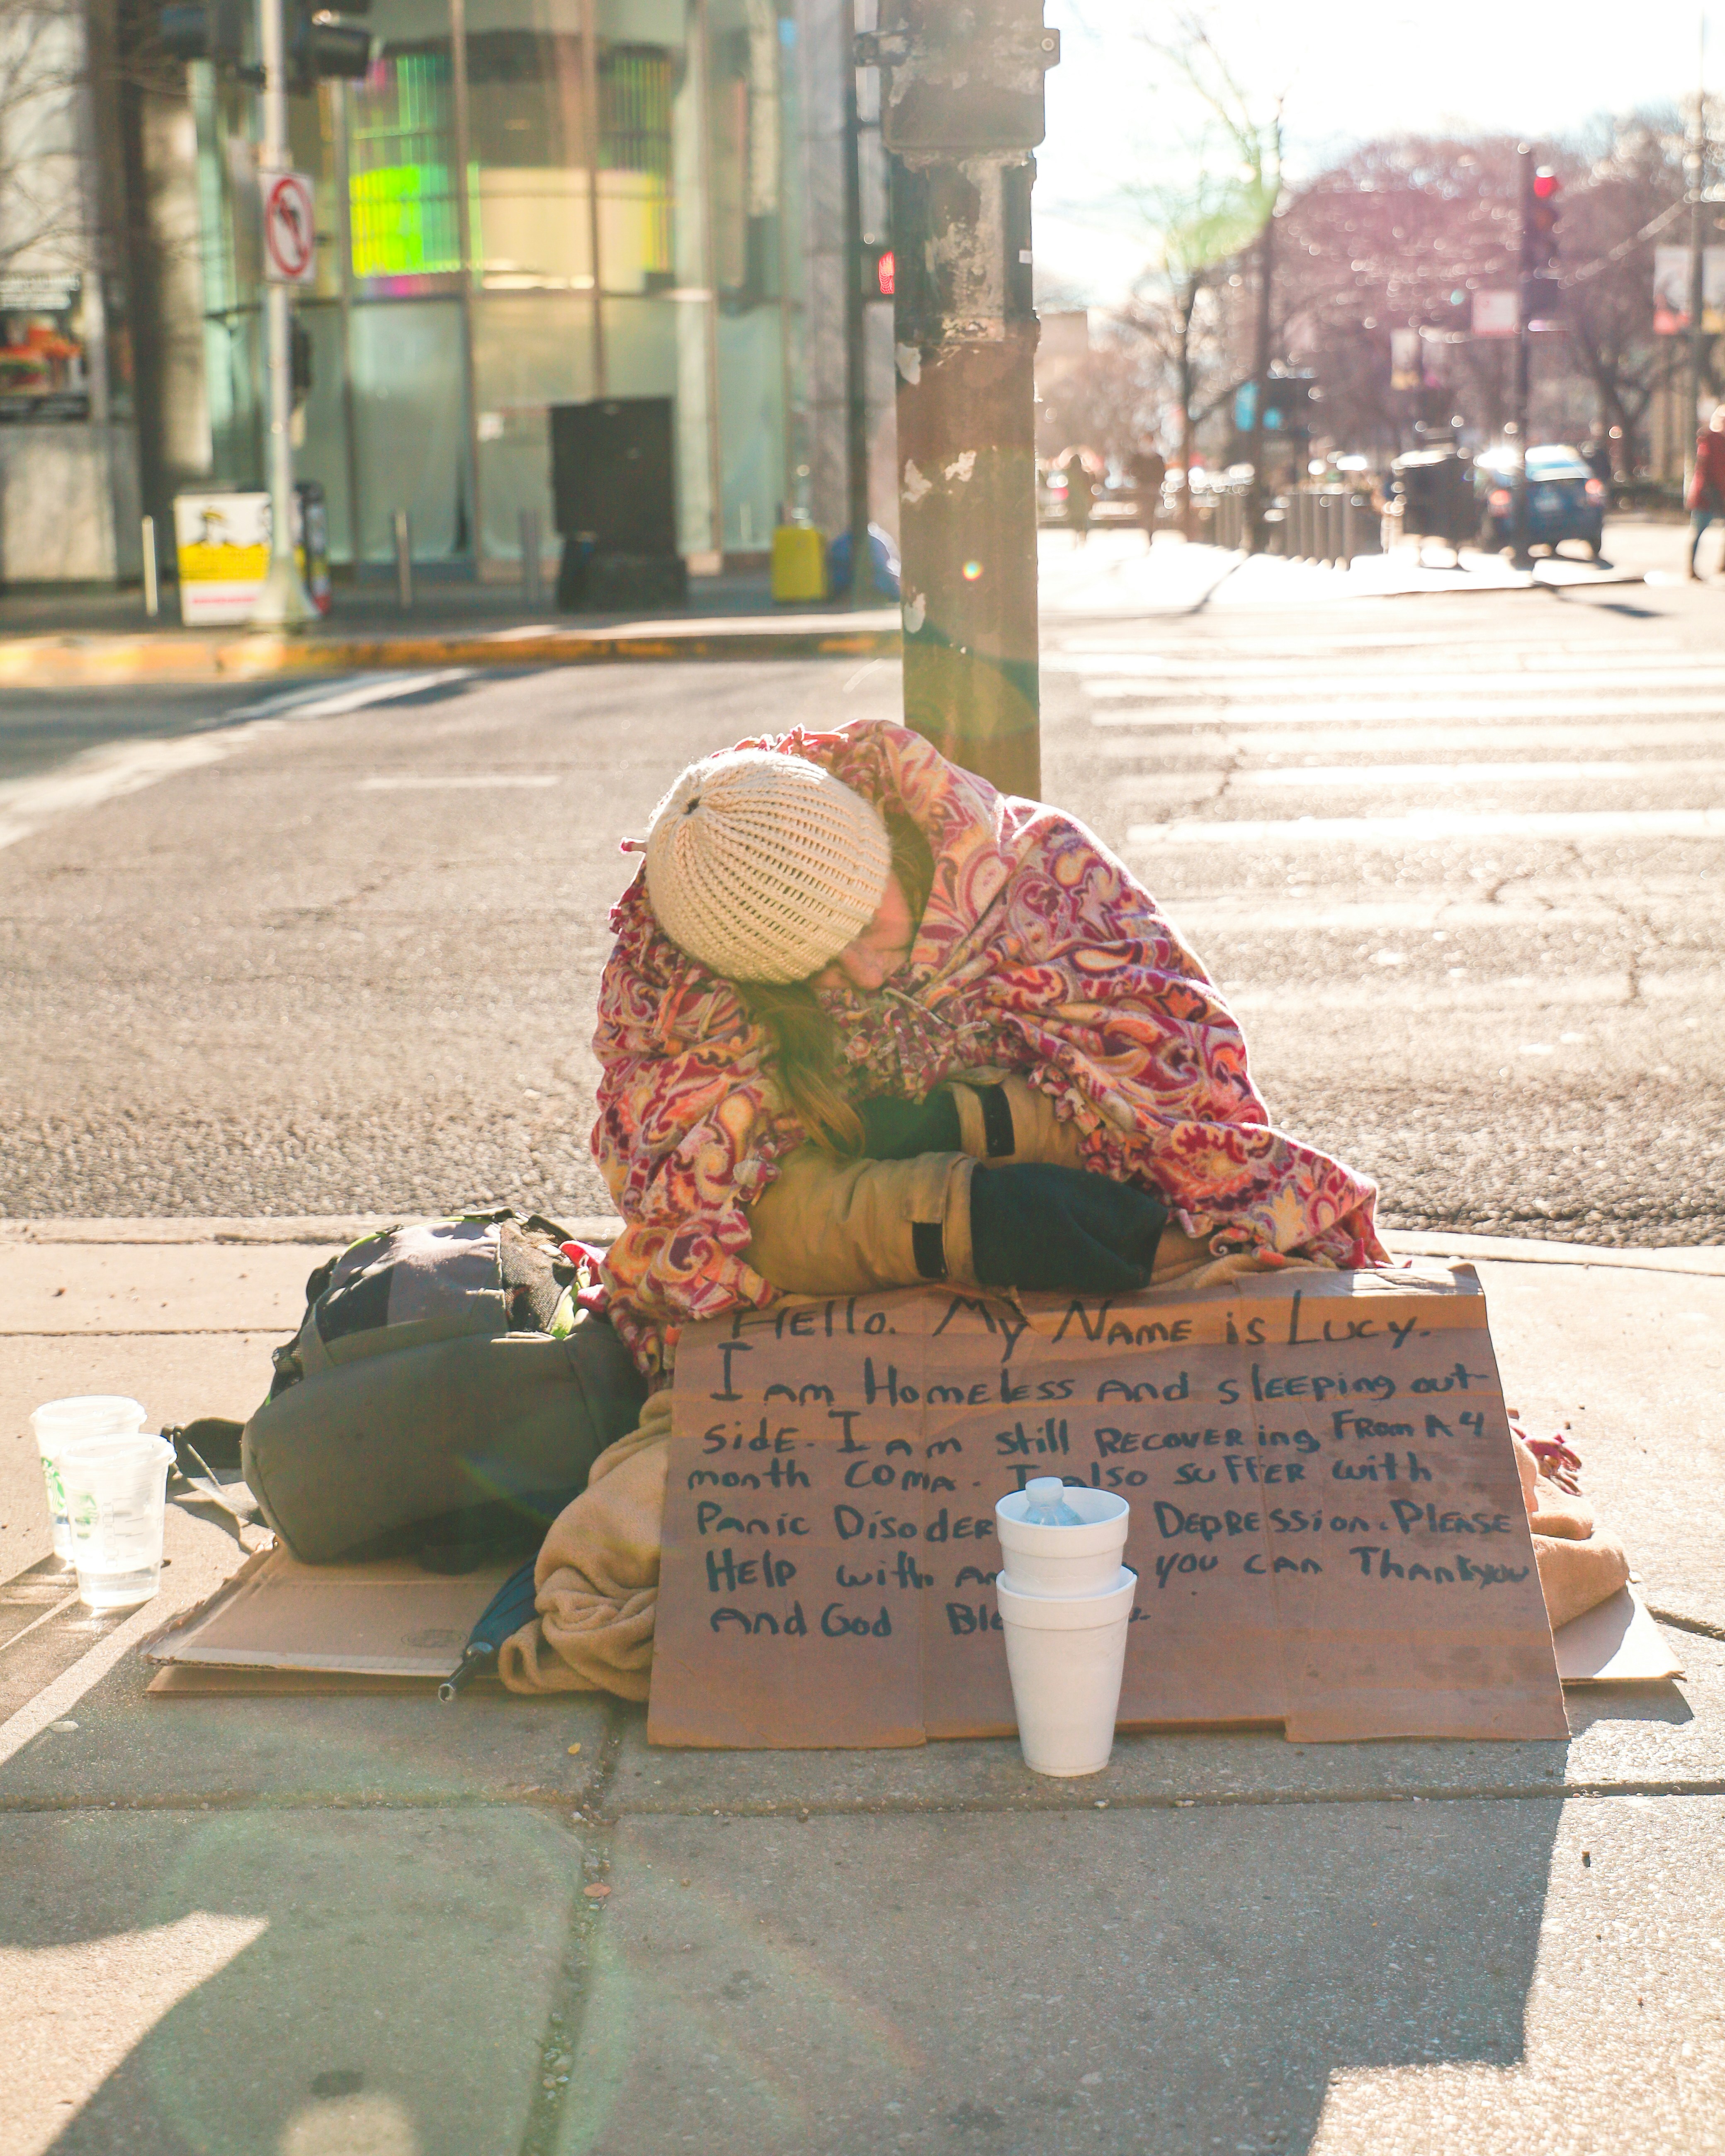 Hello. My Name is Lucy.
I am Homeless and sleeping out-
side. I am still Recovering From A 4
month coma. I also suffer with
Panic Disoder Depression. Please
Help with an you can Thank you
And God Ble